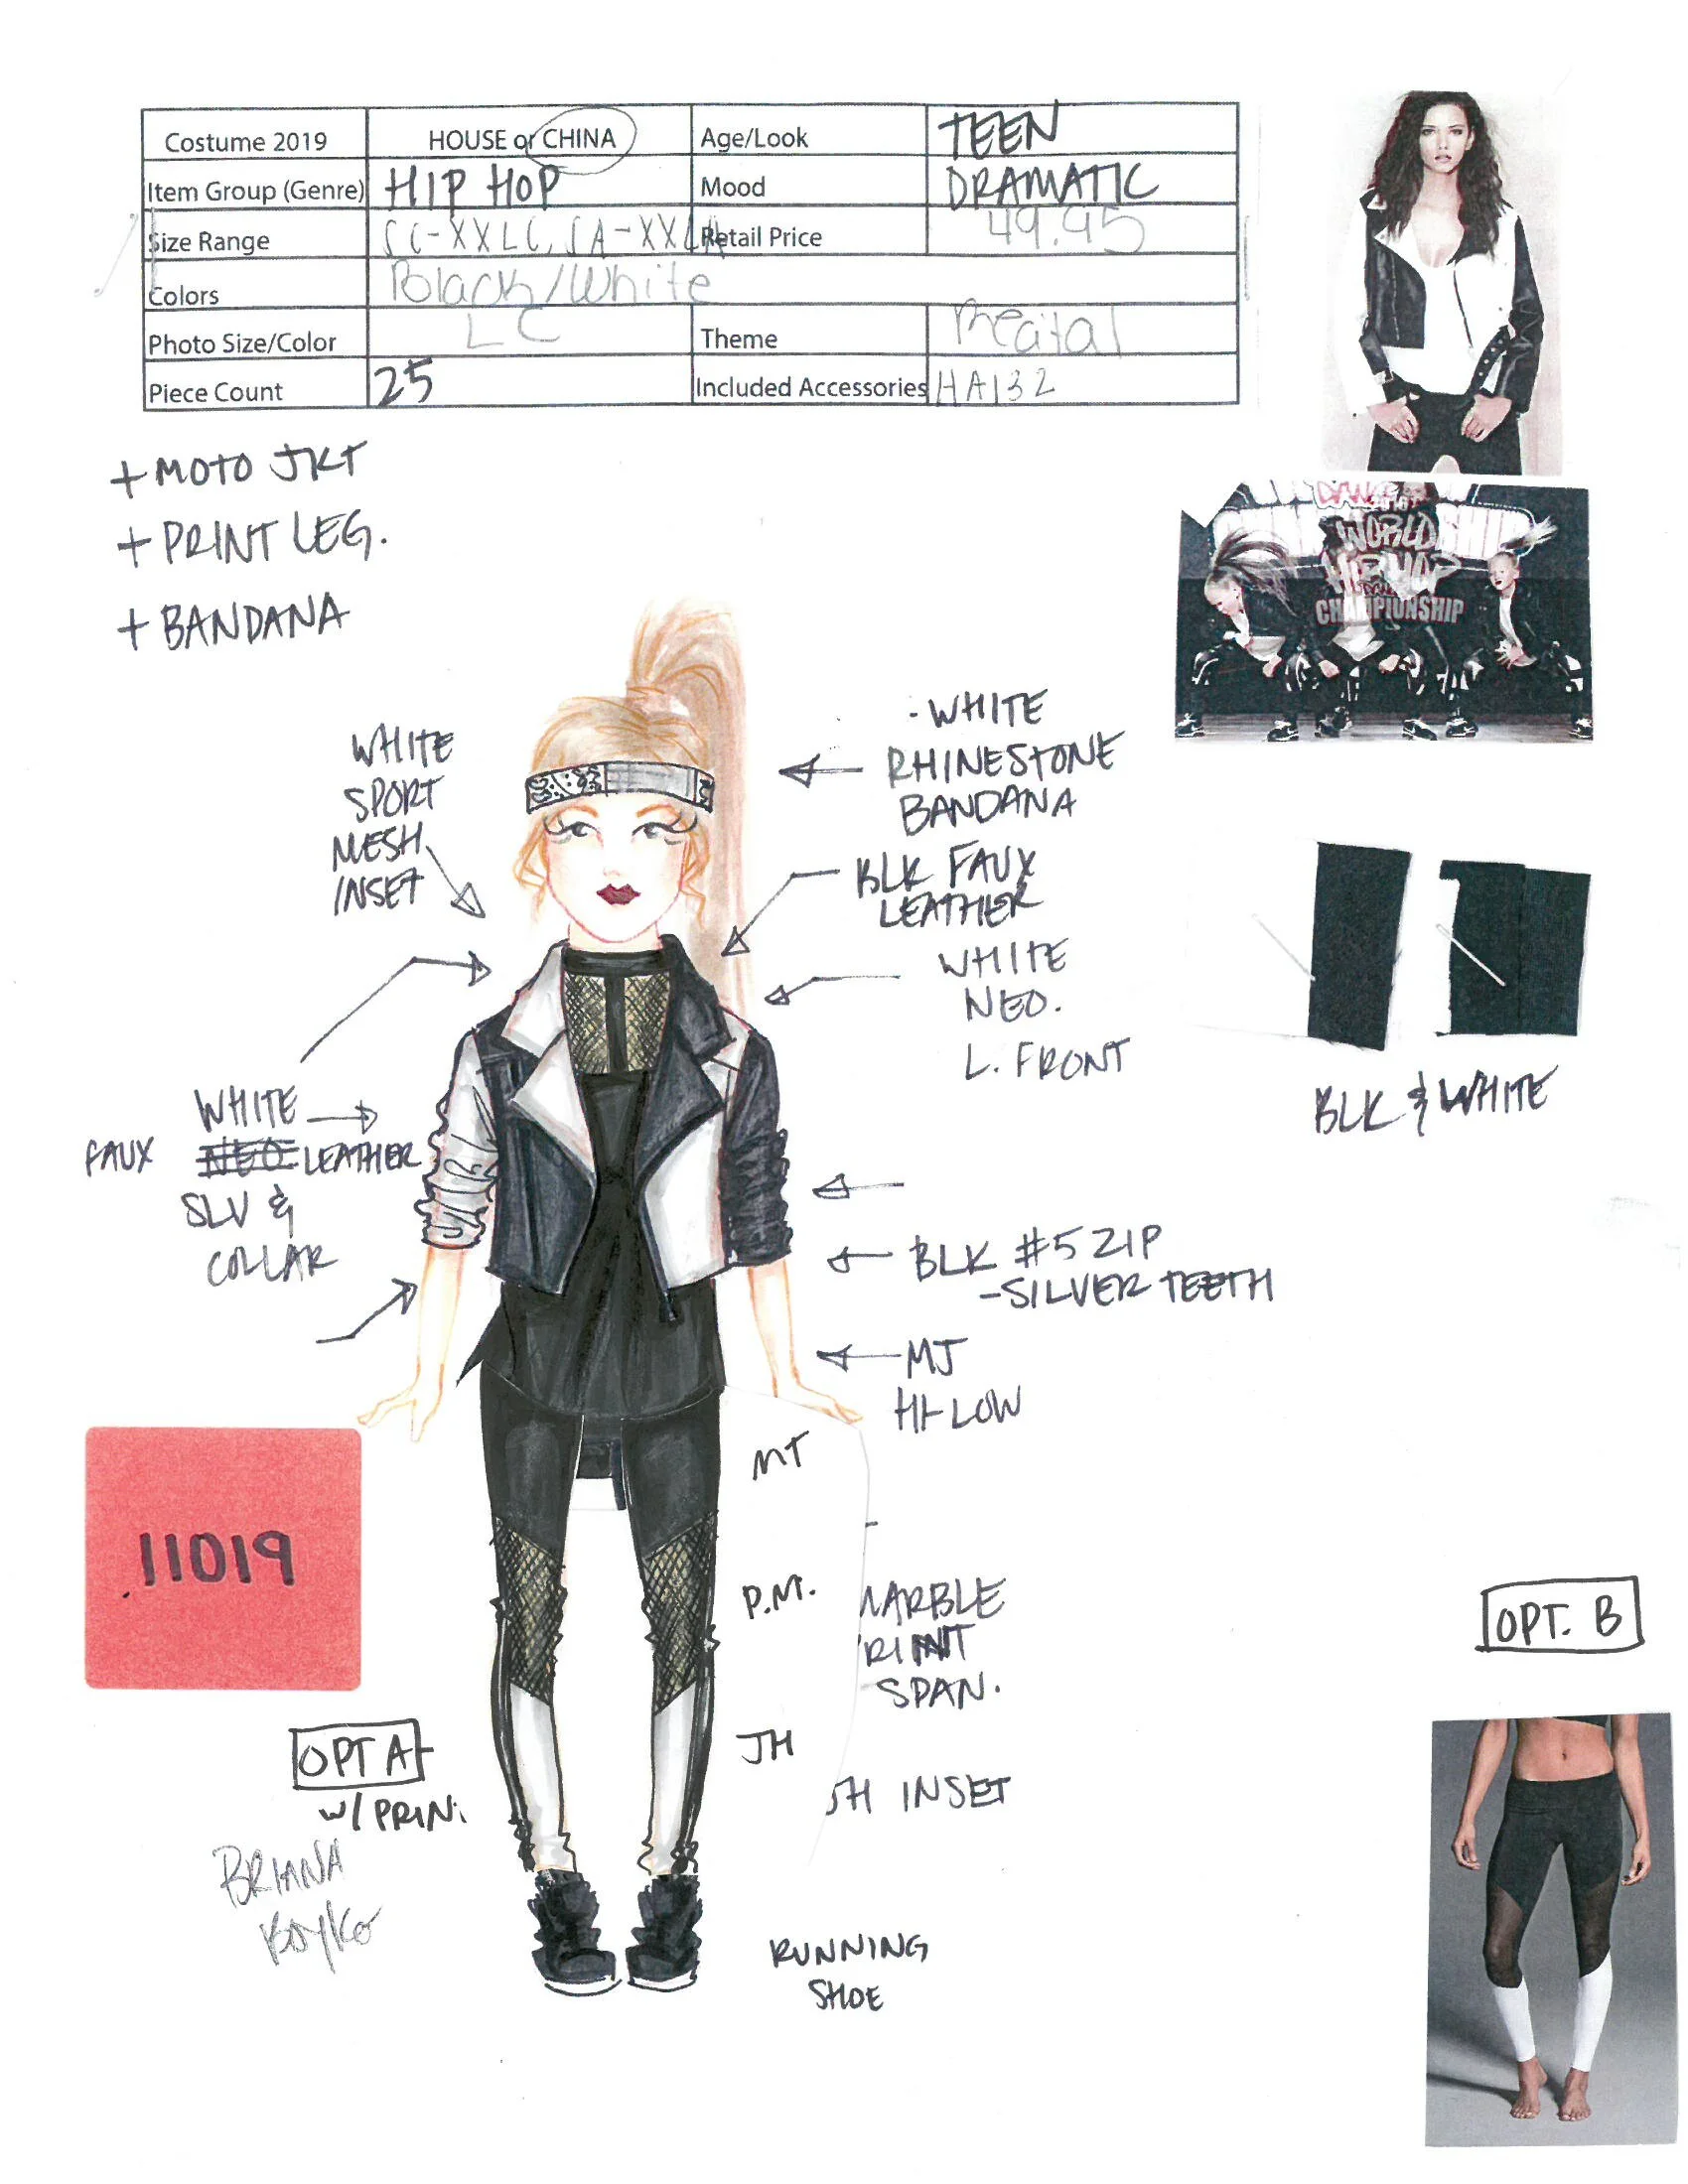 Costume 2019 HOUSE or CHINA Age/Look TEEN
Item Group (Genre) HIP HOP Mood DRAMATIC
Size Range SC-XXLC, SA-XXLA Retail Price 49.95
Colors Black/White
Photo Size/Color LC Theme Recital
Piece Count 25 Included Accessories HA132
+ MOTO JKT
+ PRINT LEG.
+ BANDANA
DANCE
WORLD
HIP HOP
DANCE
CHAMPIONSHIP
WHITE
SPORT
MESH
INSET
- WHITE
RHINESTONE
BANDANA
BLK FAUX
LEATHER
WHITE
NEO.
L. FRONT
BLK & WHITE
WHITE
FAUX NEO LEATHER
SLV &
COLLAR
BLK #5 ZIP
-SILVER TEETH
MJ
HI-LOW
MT
11019
P.M.
MARBLE
PRINT
SPAN.
OPT. B
JH
OPT A
W/ PRIN
SH INSET
BRIANA
BOYKO
RUNNING
SHOE